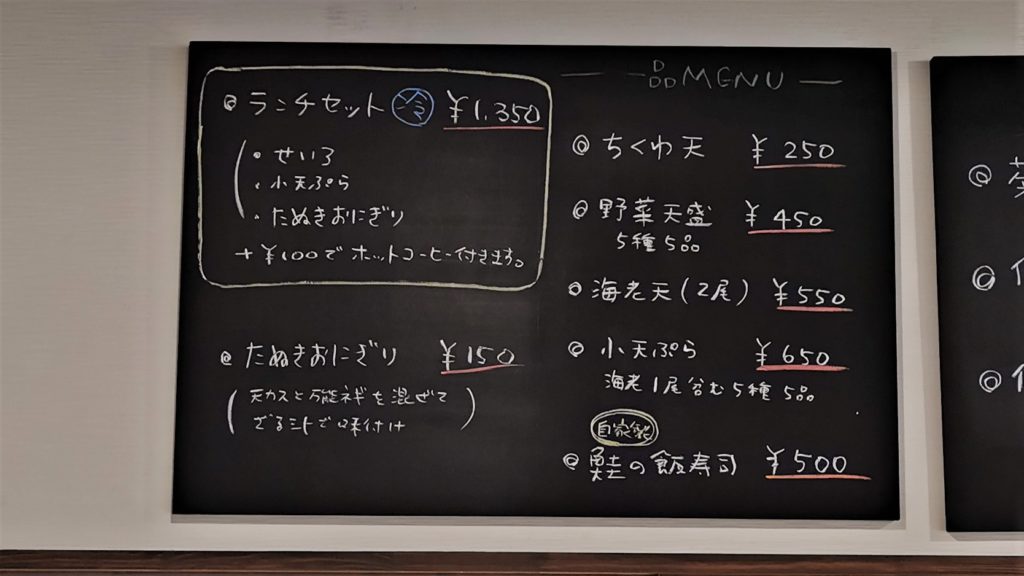 ◎ ランチセット 冷 ¥1,350
・せいろ
・小天ぷら
・たぬきおにぎり
+¥100でホットコーヒー付きます。
◎ たぬきおにぎり ¥150
(天カスと万能ネギを混ぜて
ざる汁で味付け)
MENU
◎ ちくわ天 ¥250
◎ 野菜天盛 ¥450
5種5品
◎ 海老天(2尾) ¥550
◎ 小天ぷら ¥650
海老1尾含む5種5品
自家製
◎ 鮭の飯寿司 ¥500